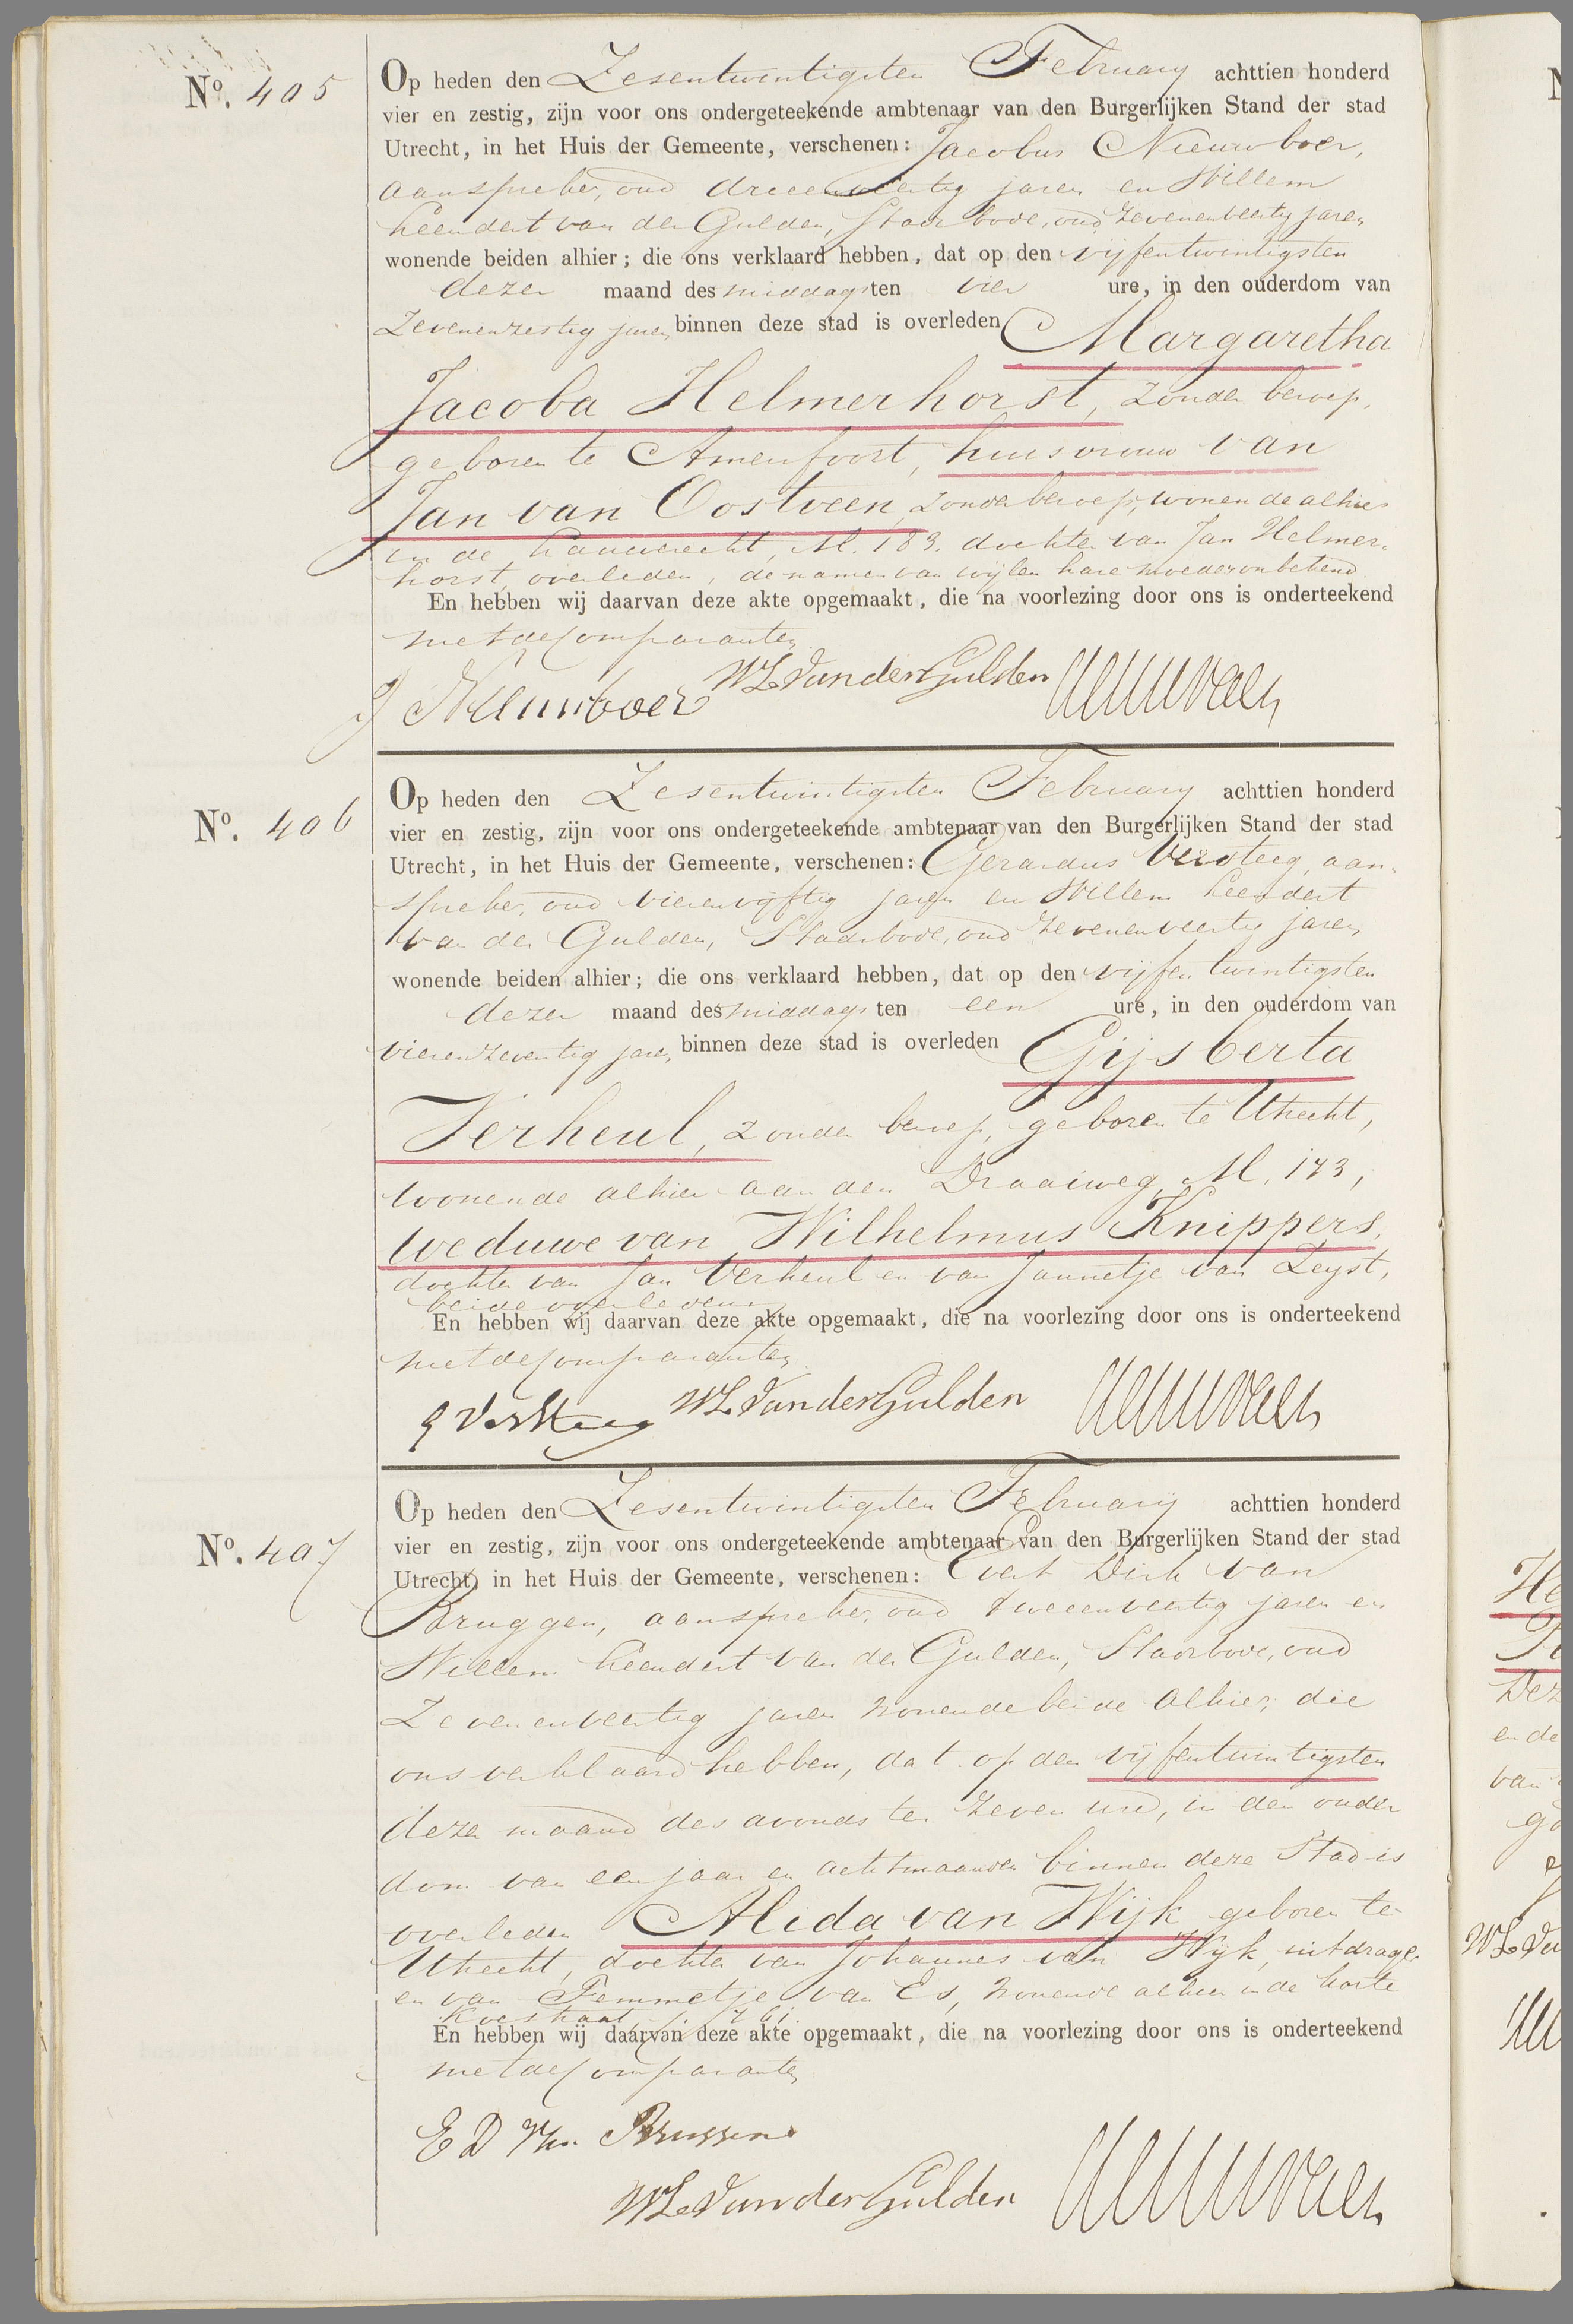 Nº. 405
Op heden den Zesentwintigsten February achttien honderd
vier en zestig, zijn voor ons ondergeteekende ambtenaar van den Burgerlijken Stand der stad
Utrecht, in het Huis der Gemeente, verschenen: Jacobus Nieuwboer,
aanspreker, oud drieenveertig jaren en Willem
Leendert van der Gulden, Stads bode, oud zevenenveertig jaren,
wonende beiden alhier; die ons verklaard hebben, dat op den vijfentwintigsten
dezer maand des middags ten vier ure, in den ouderdom van
zevenenzestig jaren, binnen deze stad is overleden Margaretha
Jacoba Helmerhorst, zonder beroep,
geboren te Amersfoort, huisvrouw van
Jan van Oostveen, zonder beroep, wonende alhier
in de M. 183. dochter van Jan Helmer-
horst, overleden, de namen van wijlen hare moeder onbekend
En hebben wij daarvan deze akte opgemaakt, die na voorlezing door ons is onderteekend
met de Comparanten
J Nieuwboer WL Van der Gulden
Nº. 406
Op heden den Zesentwintigsten February achttien honderd
vier en zestig, zijn voor ons ondergeteekende ambtenaar van den Burgerlijken Stand der stad
Utrecht, in het Huis der Gemeente, verschenen: Gerardus Versteeg, aan-
spreker, oud vierenvijftig jaren en Willem Leendert
van der Gulden, Stadsbode, oud zevenenveertig jaren,
wonende beiden alhier; die ons verklaard hebben, dat op den vijfentwintigsten
dezer maand des middags ten een ure, in den ouderdom van
vierenzeventig jaren, binnen deze stad is overleden Gijsberta
Verheul, zonder beroep, geboren te Utrecht,
wonende alhier aan den Draaiweg, M. 173,
weduwe van Wilhelmus Knippers,
dochter van Jan Verheul en van Jannetje van Zeyst,
beide overleden
En hebben wij daarvan deze akte opgemaakt, die na voorlezing door ons is onderteekend
met de Comparanten
G Versteeg WL Van der Gulden
Nº. 407
Op heden den Zesentwintigsten February achttien honderd
vier en zestig, zijn voor ons ondergeteekende ambtenaar van den Burgerlijken Stand der stad
Utrecht, in het Huis der Gemeente, verschenen: Evert Dirk van
Bruggen, aanspreker, oud tweeenveertig jaren en
Willem Leendert van der Gulden, Stadsbode, oud
Zevenenveertig jaren wonende beide alhier; die
ons verklaard hebben, dat op den vijfentwintigsten
dezer maand des avonds ten zeven ure, in den ouder
dom van een jaar en acht maanden binnen deze Stad is
overleden Alida van Wijk geboren te
Utrecht, dochter van Johannes van Wijk, uitdrager
en van Femmetje van Es, wonende alhier in de korte
Koestraat,
En hebben wij daarvan deze akte opgemaakt, die na voorlezing door ons is onderteekend
met de Comparanten
E D Van Bruggen
WL Van der Gulden